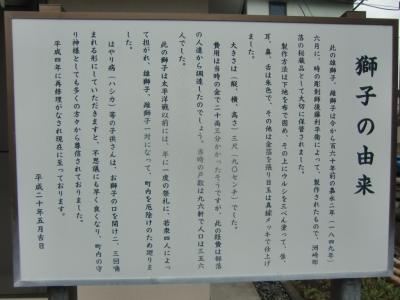 獅子の由来
此の雄獅子、雌獅子は今から百六十年前の嘉永二年（一八四九年）
六月に、時の彫刻師後藤利平衛によって、製作されたもので、洲崎部
落の秘蔵品として大切に保管されました。
製作方法は下地を布で固め、その上にウルシを三べん塗って、張
耳、鼻、舌は朱色で、その他は金箔を張り目玉は真鍮メッキで仕上げ
ました。
大きさは（縦、横、高さ）三尺（九〇センチ）でした。
費用は当時の金で二十両三分かかったそうですが、此の経費は部落
の人達から調達したのでしょう。当時の戸数は九六軒で人口は三五六
人でした。
此の獅子は太平洋戦以前には、年に一度の祭礼に、若衆四人によっ
て担がれ、雄獅子、雌獅子一対になって、町内を厄除けのため廻りま
した。
はやり病（ハシカ）等の子供さんは、お獅子の口を開けニ、三回噛
まれる形にしていただきますと、不思議にも早く良くなり、町内の守
り神様としても多くの方々から尊信されておりました。
平成四年に再修理がなされ現在に至っております。
平成二十年五月吉日